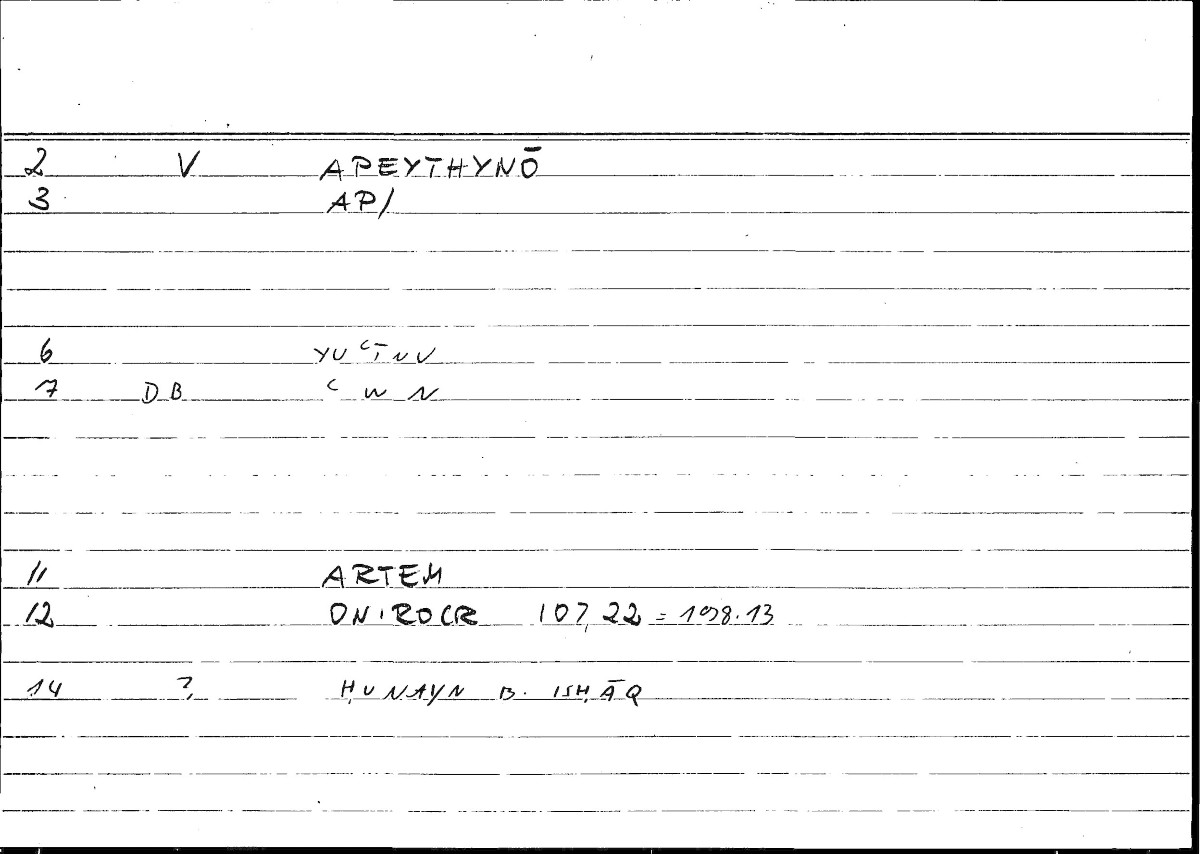 2 V APEYTHYNŌ
3 AP/
6 YUʿĪNU
7 DB ʿWN
11 ARTEM
12 ONIROCR 107,22 = 198.13
14 ? ḤUNAYN B. ISḤĀQ